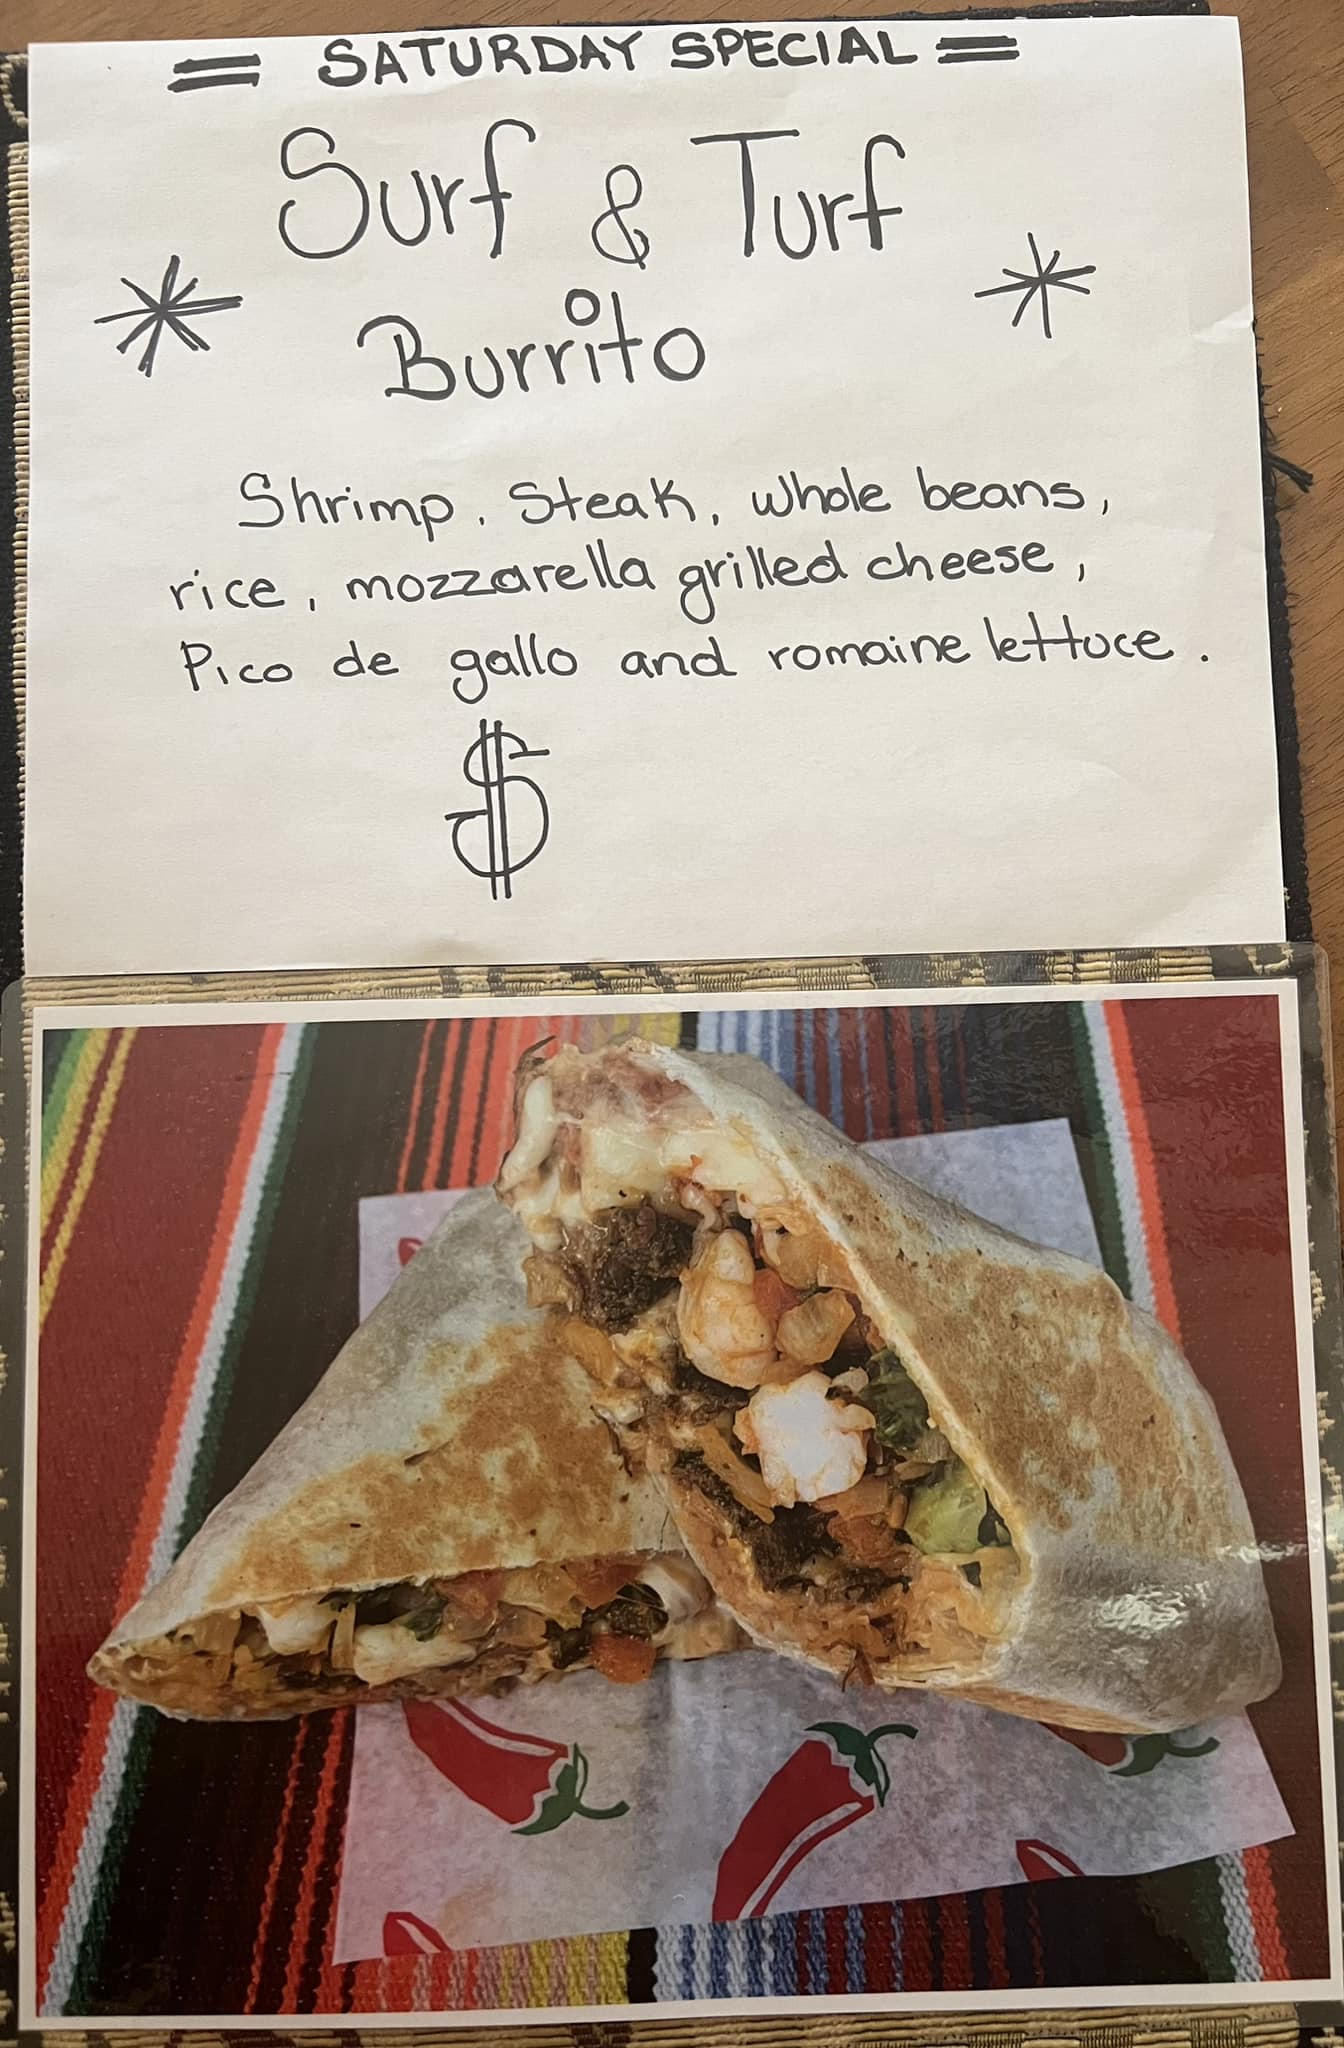 = SATURDAY SPECIAL =
Surf & Turf
Burrito
Shrimp, Steak, whole beans,
rice, mozzarella grilled cheese,
Pico de gallo and romaine lettuce.
$